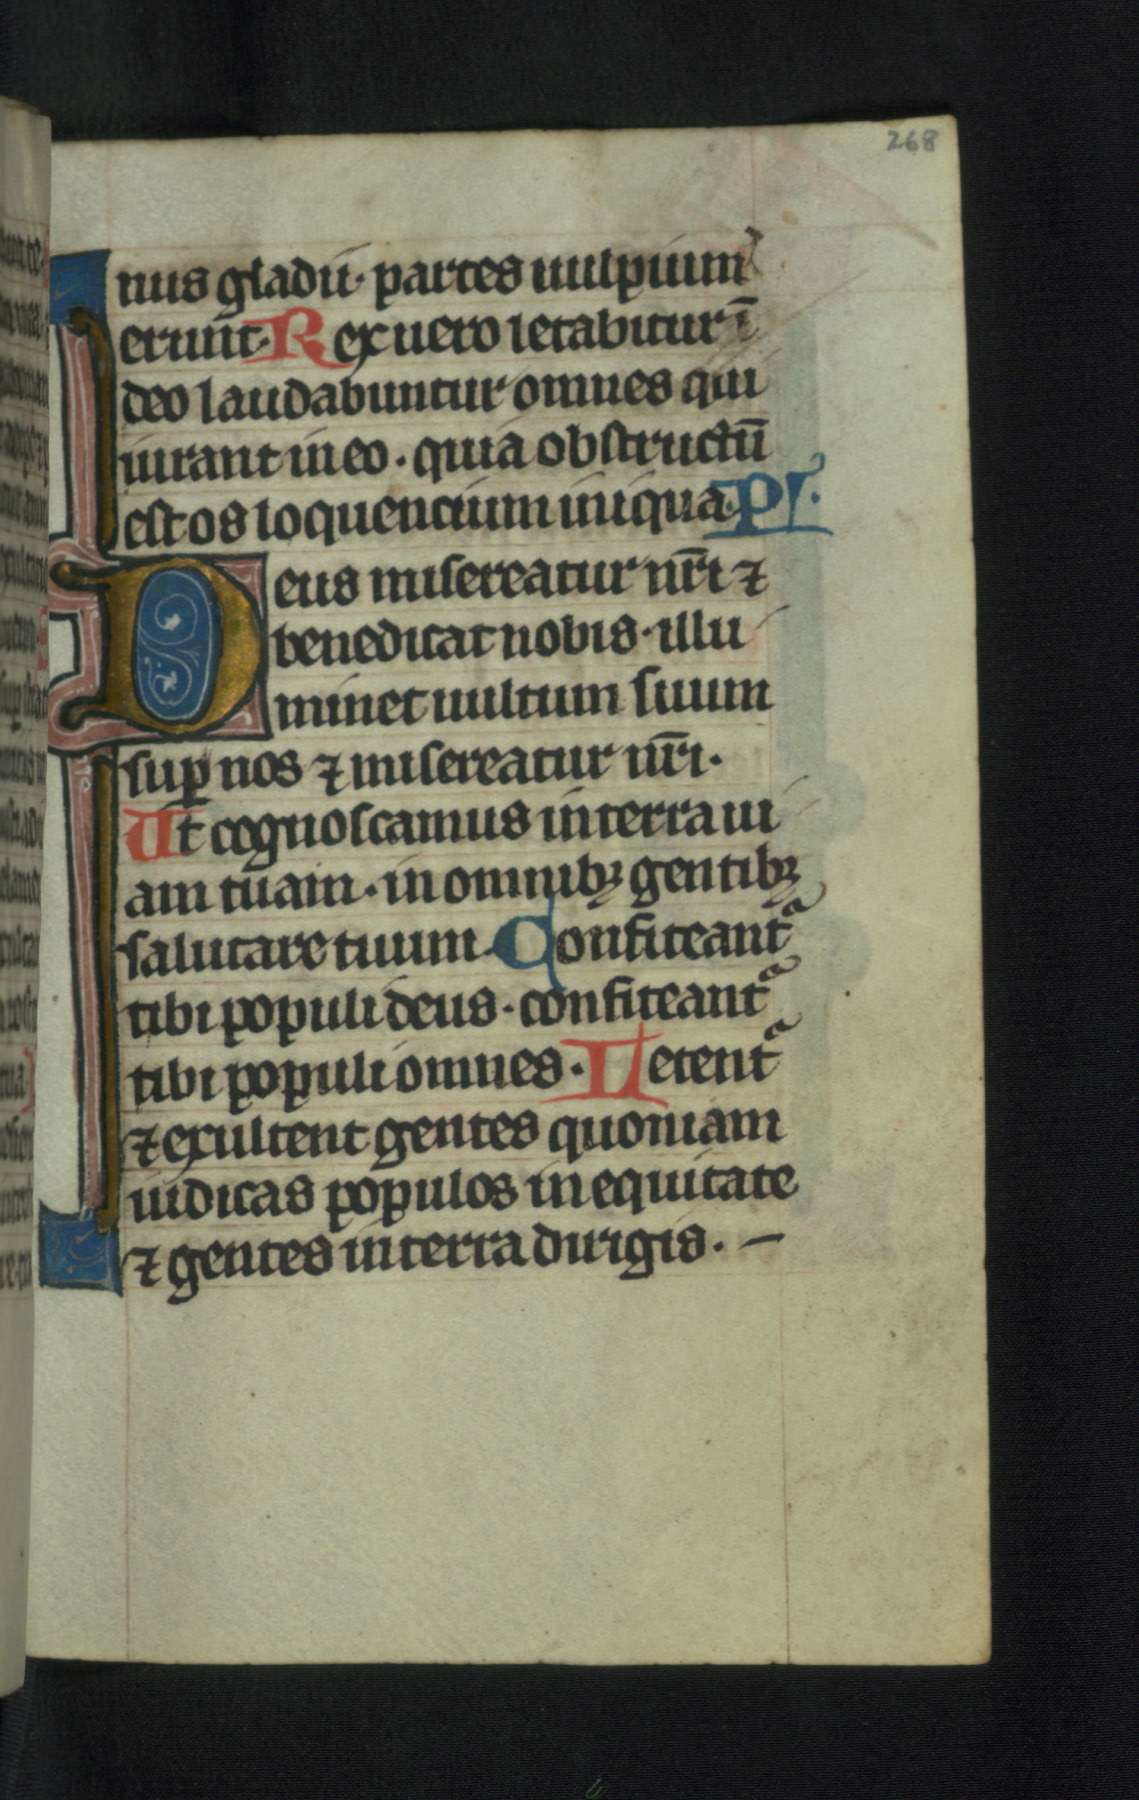 268
nus gladii· partes uulpium
erunt· Rex uero letabitur ī
deo laudabuntur omnes qui
iurant in eo· quia obstructū
est os loquencium iniqua· ps·
Deus misereatur nr̄i ⁊
benedicat nobis· illu
minet uultum suum
suꝑ nos ⁊ misereatur nr̄i·
Ut cognoscamus in terra ui
am tuam· in omnibꝫ gentibꝫ
salutare tuum· Confiteantᷣ
tibi populi deus· confiteantᷣ
tibi populi omnes· Letentᷣ
⁊ exultent gentes quoniam
iudicas populos in equitate
⁊ gentes in terra dirigis· —